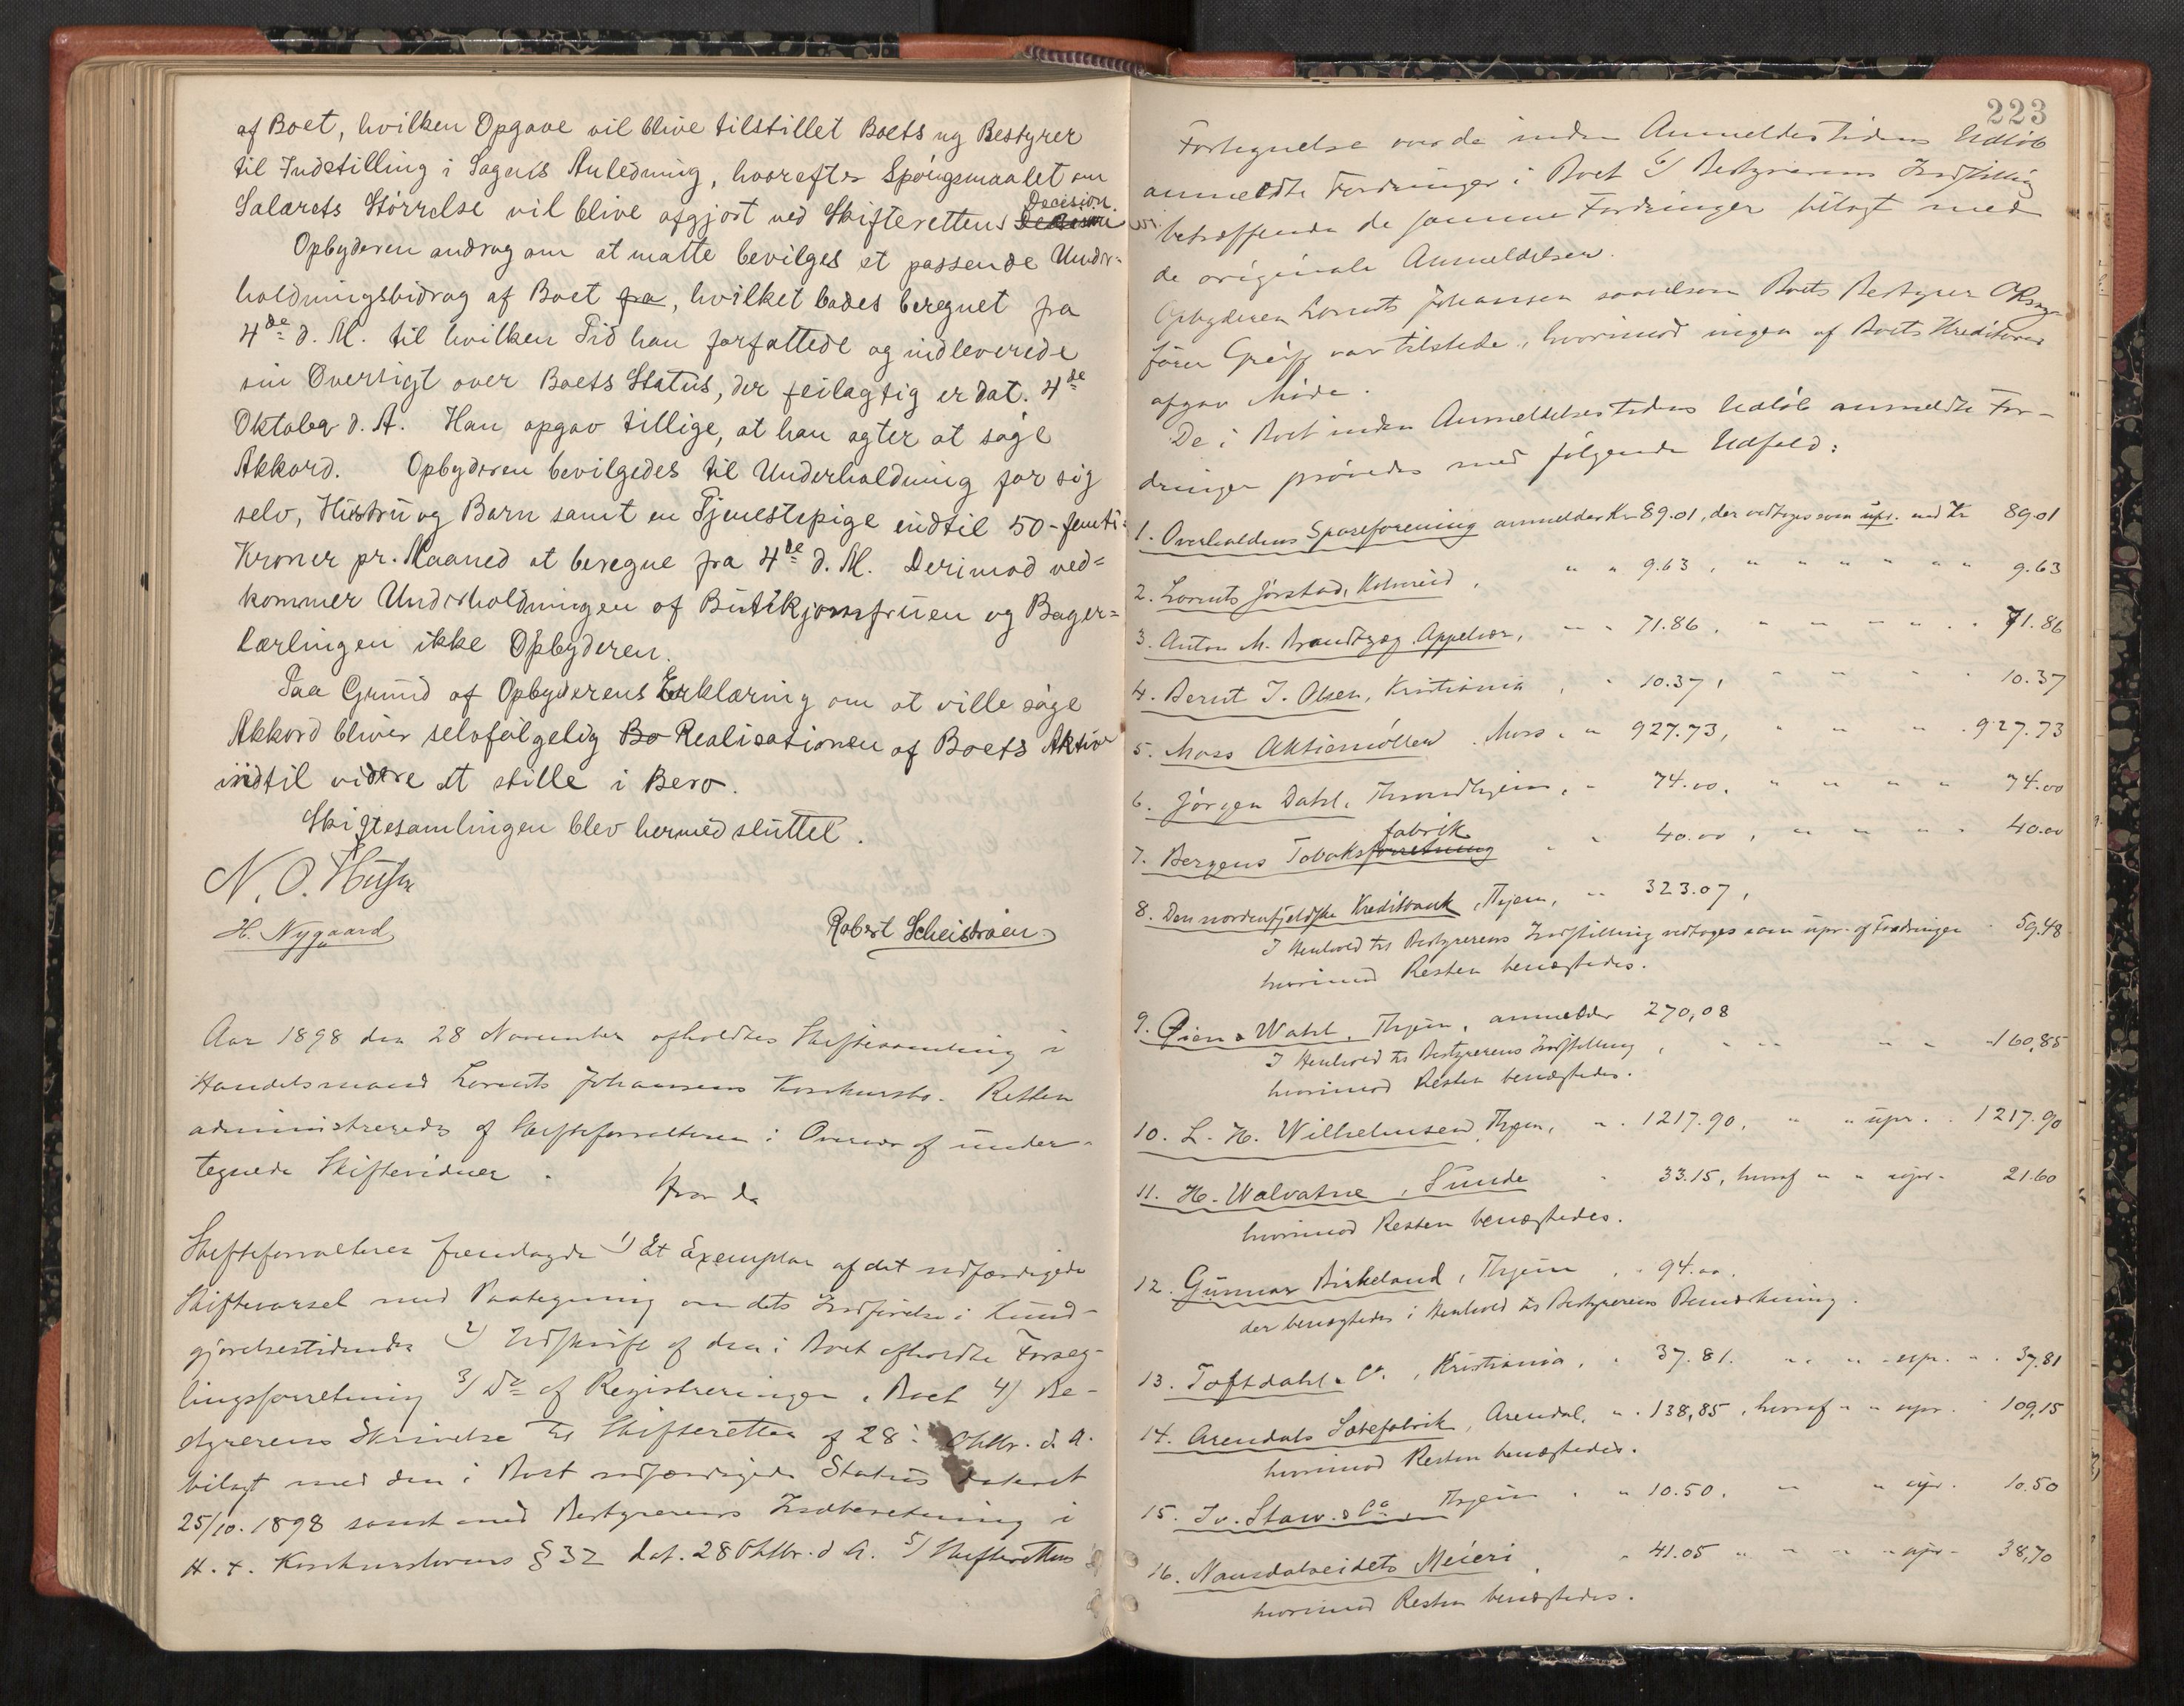 af Boet, hvilken Opgave vil blive tilstillet Boets ny Bestyrer
til Indstilling i Sagens Anledning, hvorefter Spörgsmaalet om
Salærets Störrelse vil blive afgjort ved Skifterettens Decision.
Opbyderen androg om at maatte bevilges et passende Under-
holdningsbidrag af Boet fra, hvilket bades beregnet fra
4de d. M. til hvilken Tid han forfattede og indleverede
sin Oversigt over Boets Status, der feilagtig er dat. 4de
Oktober d. A. Han opgav tillige, at han agter at søge
Akkord. Opbyderen bevilgedes til Underholdning for sig
selv, Hustru og Barn samt en Tjenestepige indtil 50 - femti
Kroner pr. Maaned at beregne fra 4de d. M. Derimod ved=
kommer Underholdningen af Butikjomfruen og Bager=
lærlingen ikke Opbyderen.
Paa Grund af Opbyderens Erklæring om at ville søge
Akkord bliver selvfølgelig Bo Realisationen af Boets Aktiva
indtil videre at stille i Bero.
Skiftesamlingen blev hermed sluttet.
N. O.
H. Nygaard
Robert Scheistrøen
Aar 1898 den 28 November afholdtes Skiftesamling i
Handelsmand Lorents Johansens Konkursbo. Retten
administreredes af Skifteforvalteren i Overvær af under-
tegnede Skiftevidner.
Hvor da
Skifteforvalteren fremlagde 1) Et Exemplar af det udfærdigede
Skiftevarsel med Paategning om dets Indførelse i Kund-
gjørelsestidende 2) Udskrift af den i Boet afholdte Forseg-
lingsforretning 3) Do af Registreringen i Boet 4) Be-
styrerens Skrivelse til Skifteretten af 28 Oktbr. d. A.
bilagt med den i Boet udfærdigede Status dateret
25/10. 1898 samt med Bestyrerens Indberetning i
H. t. Konkurslovens § 32 dat. 28 Oktbr. d. A. 5) Skifterettens
223
Fortegnelse over de inden Anmeldestidens Udløb
anmeldte Fordringer i Boet 6) Bestyrerens Indstilling
betræffende de samme Fordringer bilagt med
de originale Anmeldelser.
Opbyderen Lorents Johansen saavelsom Boets Bestyrer O.Rsag-
fører Greiff var tilstede, hvorimod ingen af Boets Kreditorer
afgav Møde.
De i Boet inden Anmeldelsestidens Udløb anmeldte For-
dringer prövedes med følgende Udfald:
1. Overhaldens Spareforening anmelder Kr 89.01, der vedtoges som upr. med Kr 89.01
2. Lorents Jörstad, " " 9.63, " " " " " 9.63
3. Anton M. Brandtzæg Appelvær, " " 71.86, " " " " 71.86
4. Bernt J. Olsen, Kristiania, " 10.37, " " " " 10.37
5. Moss Aktiemöller, Moss " " 927.73, " " " " 927.73
6. Jörgen Dahl, Throndhjem, " 74.00, " " " " 74.00
7. Bergens Tobaksfabrik " " 40.00, " " " " 40.00
8. Den nordenfjeldske Kreditbank, Thjem, " 323.07,
I Henhold til Bestyrerens Indstilling vedtoges som upr. af Fordringen 59.48
hvorimod Resten benægtedes.
9. Øien & Wahl, Thjem, anmelder 270,08
I Henhold til Bestyrerens Indstilling, " " " " 160,85
hvorimod Resten benægtedes.
10. L. H. Wilhelmsen Thjem, " 1217.90, " " upr. 1217.90
11. H. Walvatne, Sunde " 33.15, hvoraf " " upr. 21.60
hvorimod Resten benægtedes.
12. Gunnar Birkeland, Thjem, " 94.00.
der benægtedes i Henhold til Bestyrerens Bemærkning.
13. Toftdahl & Co., Kristiania, " 37.81. " " upr. " 37.81
14. Arendals Sæbefabrik, Arendal, " 138,85, hvoraf " " upr. 109,15
hvorimod Resten benægtedes.
15. Iv. Staw. & Co., Thjem " " 10.50. " " upr. 10.50
16. Namsdalseidets Meieri " 41.05 " " " " upr. 38,70
hvorimod Resten benægtedes.